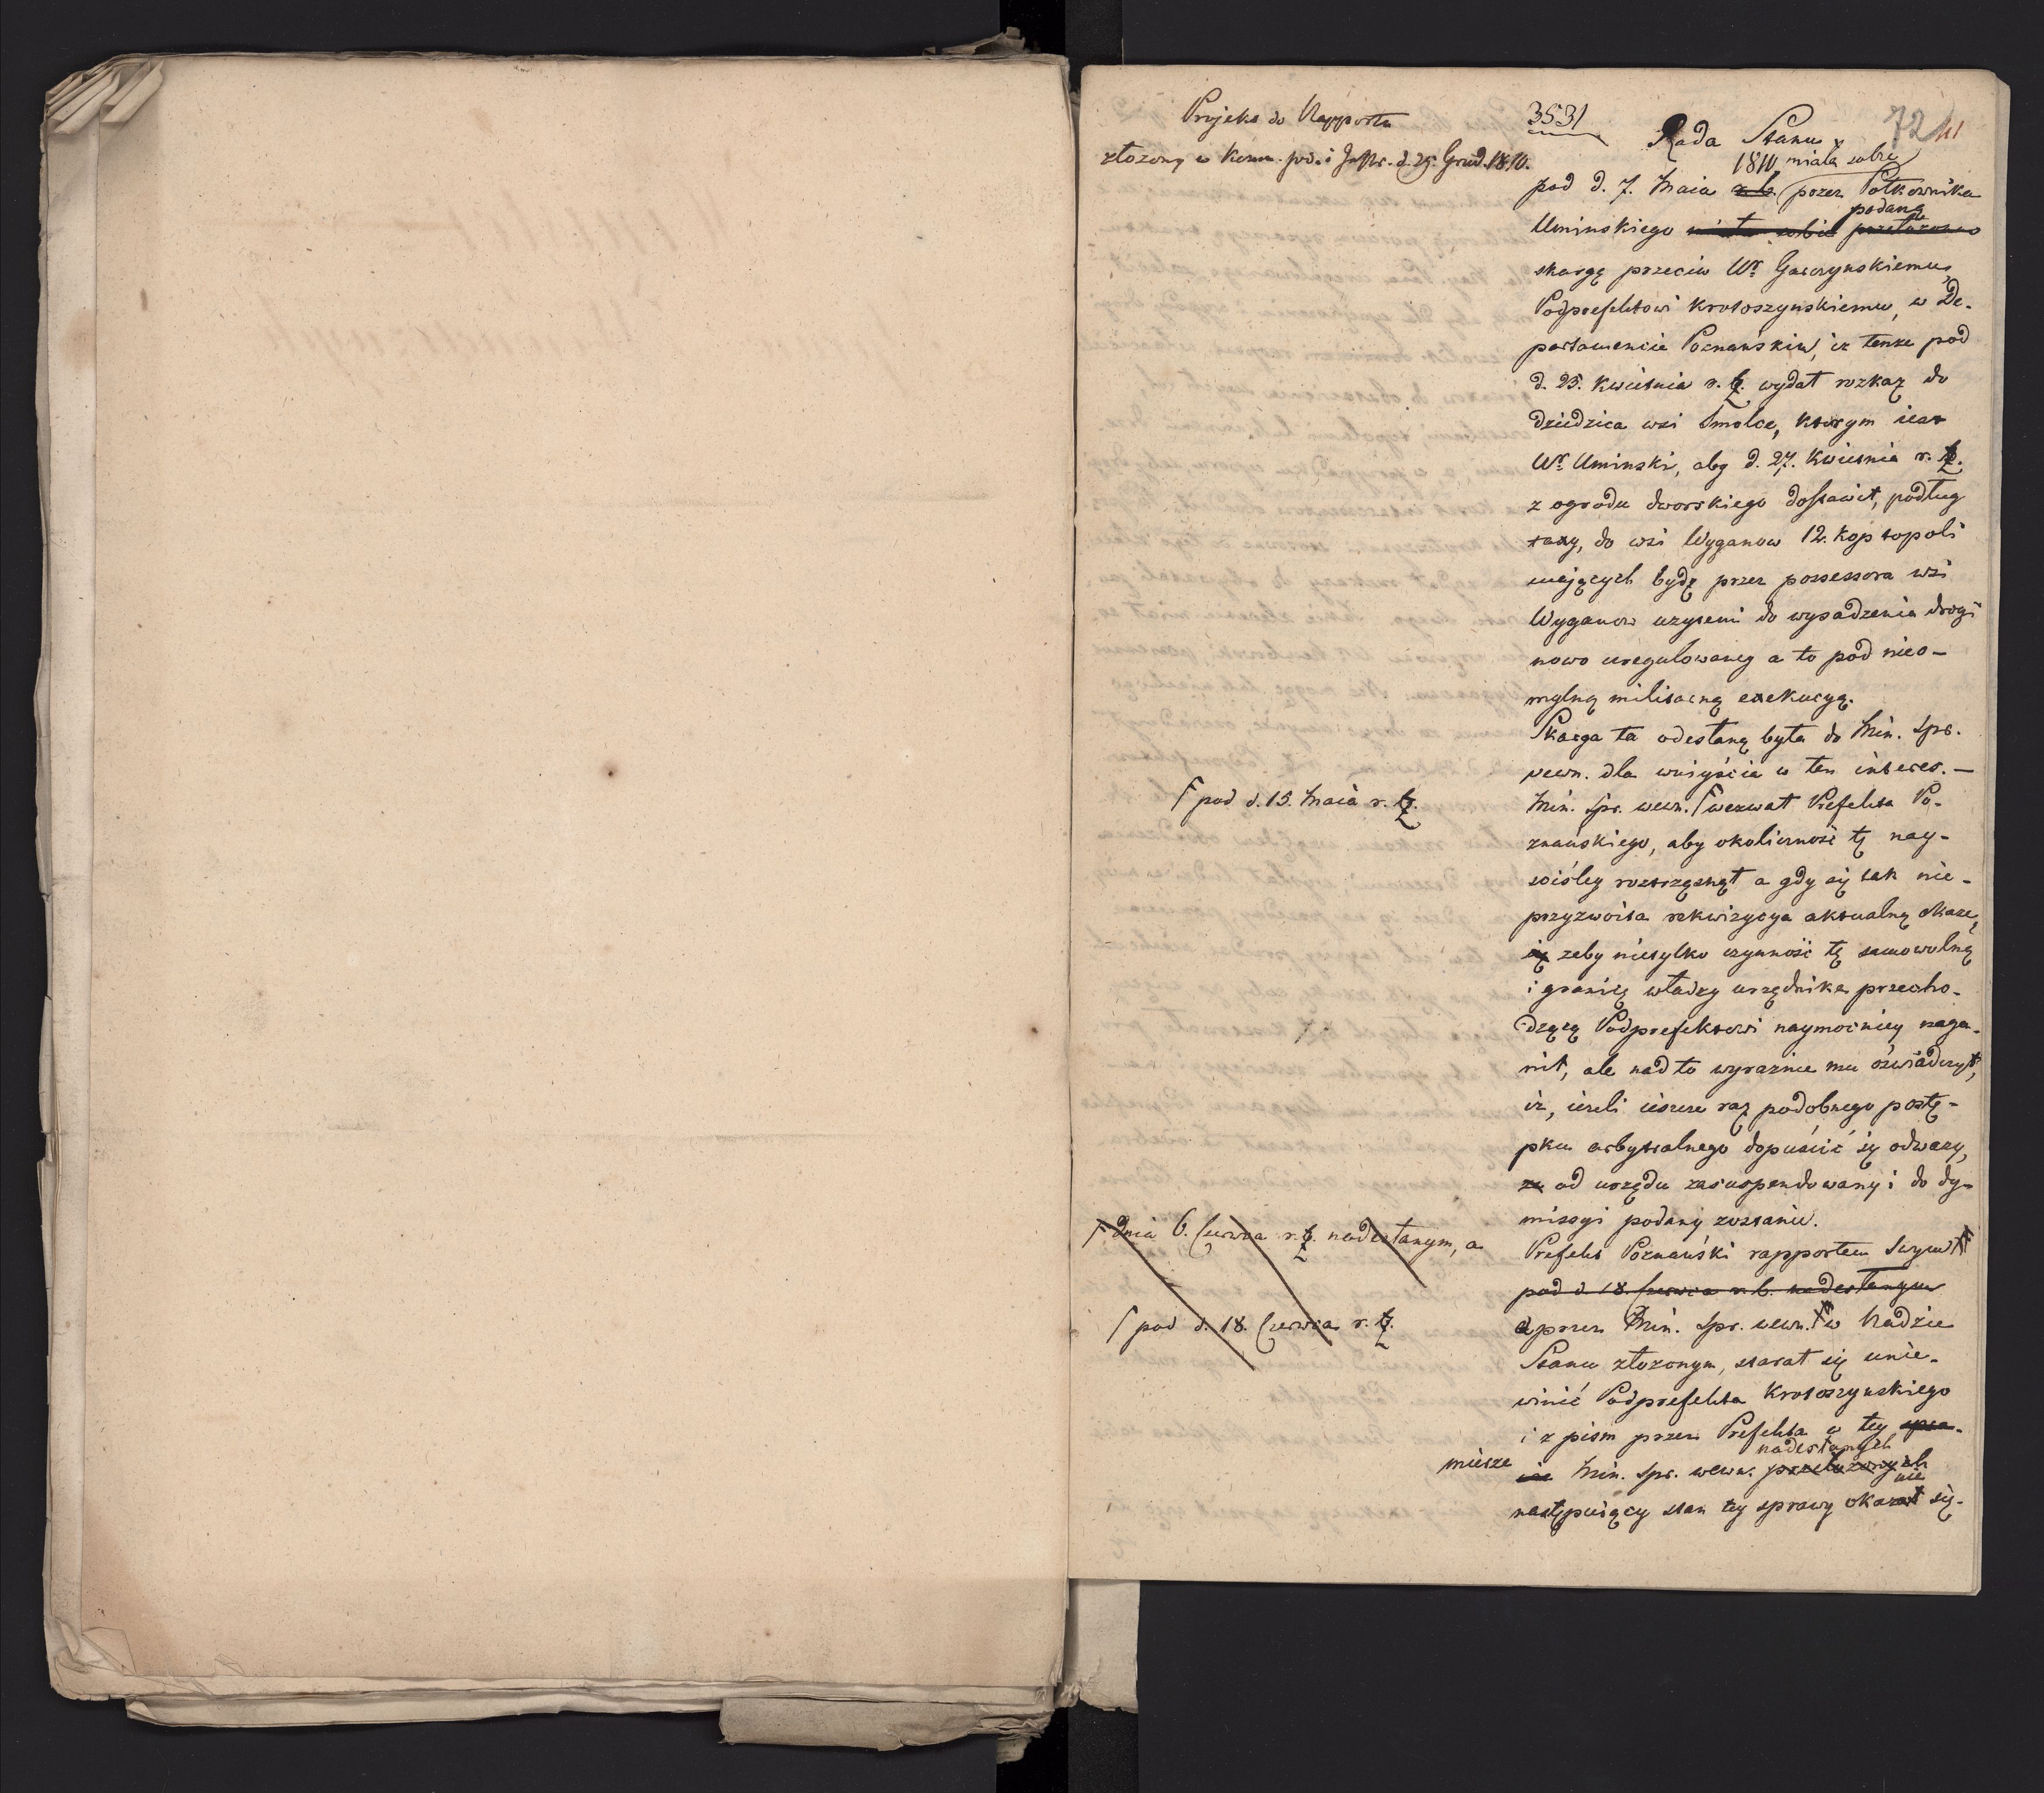 Projekt do Rapportu
złożony w Komm. pod. i Instr. d. 29. Grud. 1810.
3531
72
41
Rada Stanu
1810, miała sobie
pod d. 7. Maia r. b. przez Połkownika
podaną
Uminskiego miała sobie przełożono
skargę przeciw Wr. Garczynskiemu,
Podprefektowi Krotoszynskiemu, w De-
partamencie Poznańskim, iz tenze pod
d. 25. Kwietnia r. z. wydał rozkaz do
dziedzica wsi Smolce, ktorym iest
Wr. Uminski, aby d. 27. Kwietnia r. z.
z ogrodu dworskiego dostawił, podług
taxy, do wsi Wyganow 12. kop topoli
maiących bydz przez possessora wsi
Wyganow uzytemi do wysadzenia drogi
nowo uregulowaney a to pod nieo-
mylną militarną exekucyą.
Skarga ta odesłaną była do Min. Spr.
wewn. dla wniyścia w ten interes. —
Min. Spr. wewn. Γ wezwał Prefekta Po-
Γ pod d. 15. Maia r. z.
znańskiego, aby okoliczność tę nay-
ściśley roztrząsnął a gdy się tak nie-
przyzwoita rekwizycya aktualną okaze,
się zeby nietylko czynność tę samowolną
i granicę władzy urzędnika przecho-
dzącą Podprefektowi naymocniey naga-
nił, ale nad to wyraznie mu oświadczył,
iz, iezeli ieszcze raz podobnego postę-
pku arbytralnego dopuścić się odwazy,
ze od urzędu zasuspendowany i do dy-
missyi podany zostanie.
Γ dnia 6. Czerwca r. z. nadesłanym, a
Prefekt Poznański rapportem swym
pod d. 18. Czerwca r. b. nadesłanym
Γ pod d. 18. Czerwca r. z.
a przez Min. Spr. wewn. w Radzie
Stanu złozonym, starał się unie-
winić Podprefekta Krotoszynskiego
i z pism przez Prefekta w tey spra-
nadesłanych
mierze
wie Min. Spr. wewn. przełozonych
nie
następuiący stan tey sprawy okazał się.